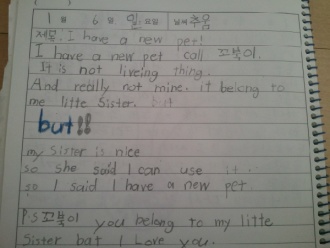 1월 6일 일요일 날씨 추움
제목. I have a new pet!
I have a new pet call 꼬북이.
It is not liveing thing.
And really not mine. it belong to
me litte Sister. but
but!!
my Sister is nice
so she said I can use it..
so I said I have a new pet.
P.S 꼬북이 you belong to my litte
Sister bat I Love you.